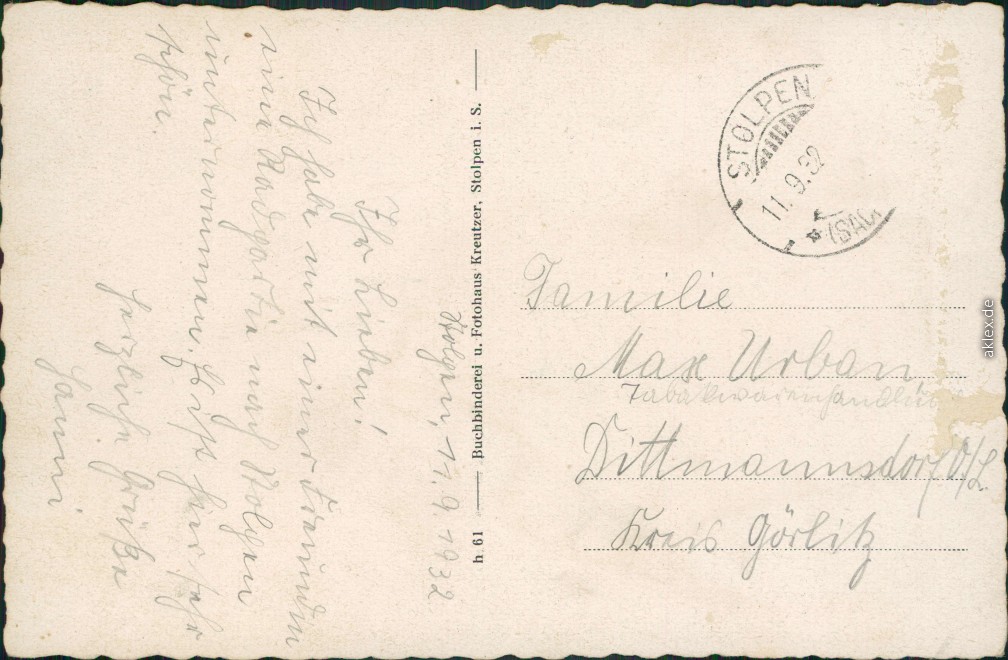 Stolpen, 11.9.1932
Ihr Lieben!
Ich habe mit einer Freundin
eine Radpartie nach Stolpen
unternommen. Es ist hier sehr
schön.
Herzliche Grüße
Hanni
h 61 Buchbinderei u. Fotohaus Kreutzer, Stolpen i. S.
STOLPEN
11.9.32
* (SAC
Familie
Max Urban
Tabakwarenhandlun
Dittmannsdorf O/L.
Kreis Görlitz
aklex.de